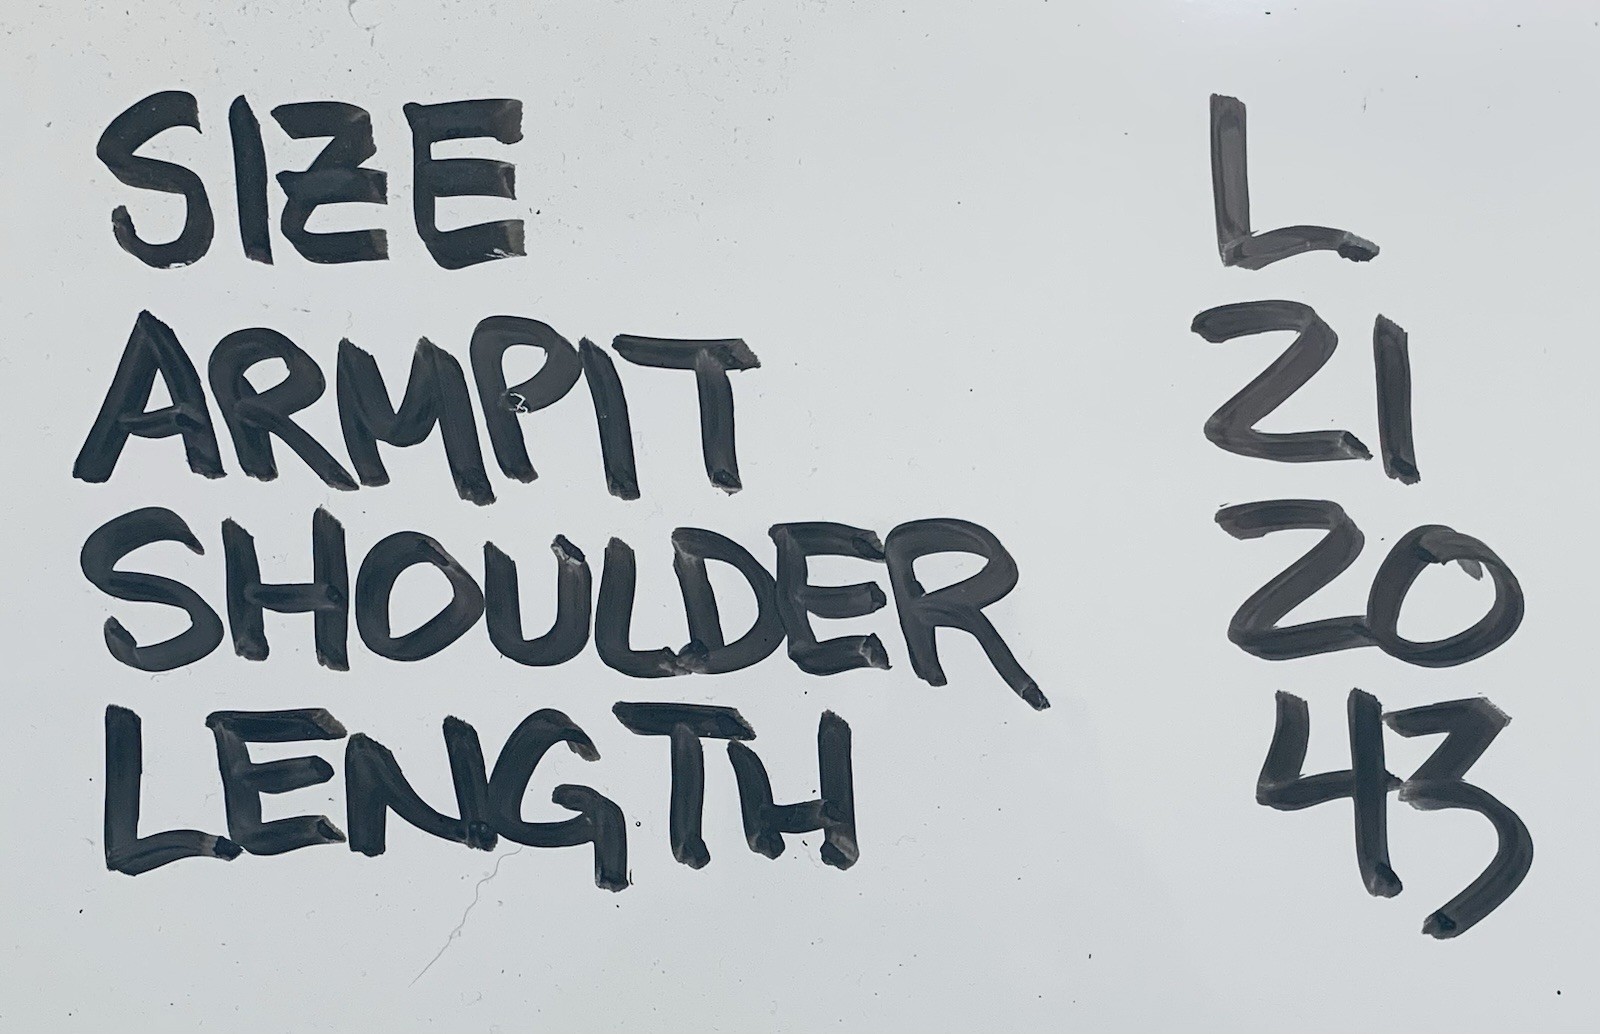 SIZE L
ARMPIT 21
SHOULDER 20
LENGTH 43